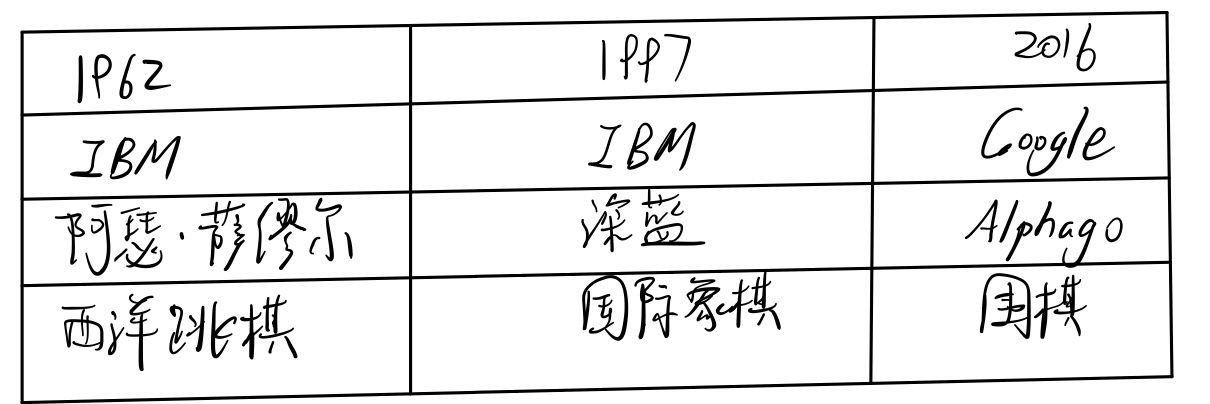 1962 1997 2016
IBM IBM Google
阿瑟·萨缪尔 深蓝 Alphago
西洋跳棋 国际象棋 围棋